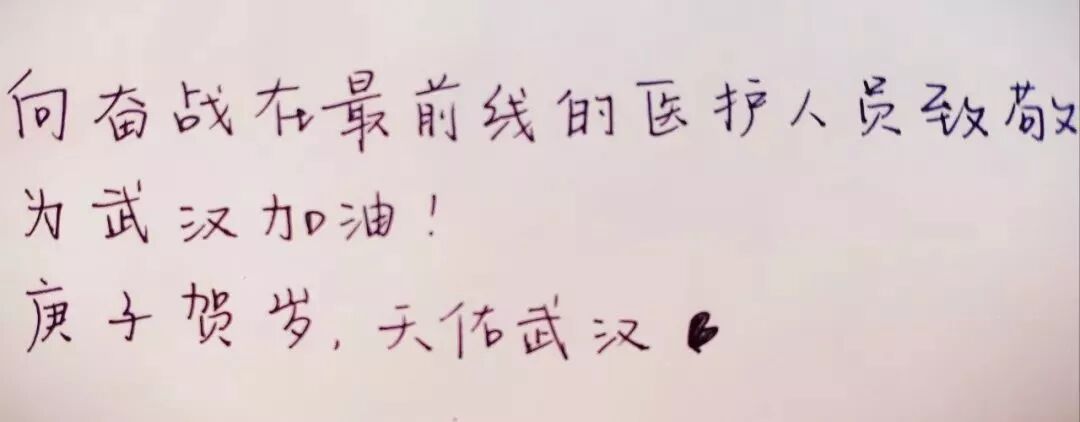 向奋战在最前线的医护人员致敬
为武汉加油！
庚子贺岁，天佑武汉